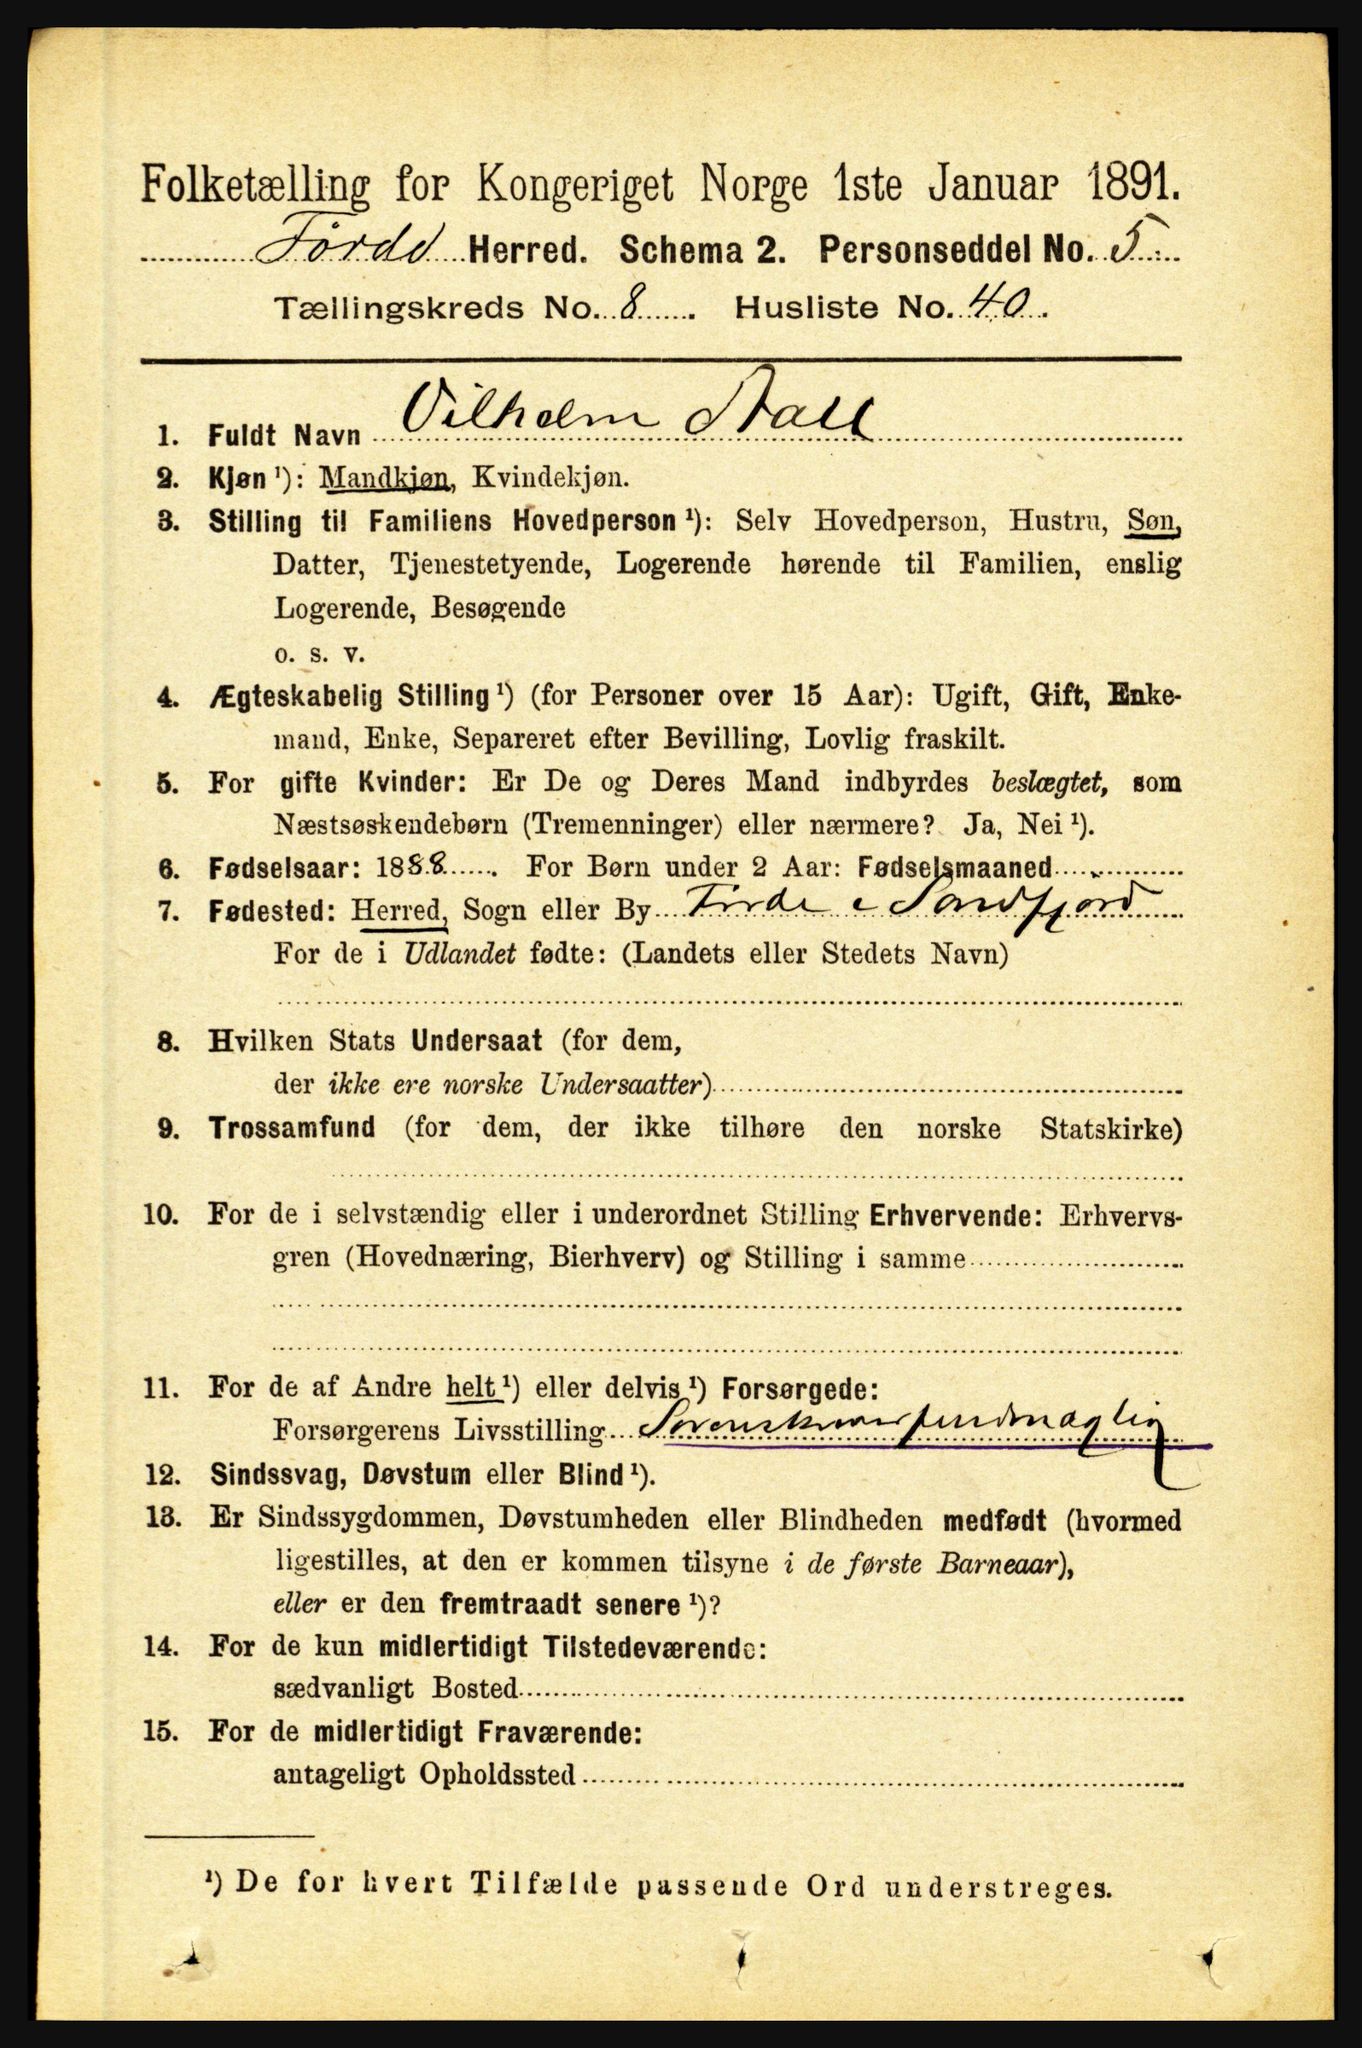 Folketælling for Kongeriget Norge 1ste Januar 1891.
Førde Herred. Schema 2. Personseddel No. 5
Tællingskreds No. 8. Husliste No. 40.
1. Fuldt Navn Vilhelm
2. Kjøn ¹): Mandkjøn, Kvindekjøn.
3. Stilling til Familiens Hovedperson ¹): Selv Hovedperson, Hustru, Søn,
Datter, Tjenestetyende, Logerende hørende til Familien, enslig
Logerende, Besøgende
o. s. v.
4. Ægteskabelig Stilling ¹) (for Personer over 15 Aar): Ugift, Gift, Enke-
mand, Enke, Separeret efter Bevilling, Lovlig fraskilt.
5. For gifte Kvinder: Er De og Deres Mand indbyrdes beslægtet, som
Næstsøskendebørn (Tremenninger) eller nærmere? Ja, Nei ¹).
6. Fødselsaar: 1888. For Børn under 2 Aar: Fødselsmaaned
7. Fødested: Herred, Sogn eller By Førde i Søndfjord
For de i Udlandet fødte: (Landets eller Stedets Navn)
8. Hvilken Stats Undersaat (for dem,
der ikke ere norske Undersaatter)
9. Trossamfund (for dem, der ikke tilhøre den norske Statskirke)
10. For de i selvstændig eller i underordnet Stilling Erhvervende: Erhvervs-
gren (Hovednæring, Bierhverv) og Stilling i samme
11. For de af Andre helt ¹) eller delvis ¹) Forsørgede:
Forsørgerens Livsstilling
12. Sindssvag, Døvstum eller Blind ¹).
13. Er Sindssygdommen, Døvstumheden eller Blindheden medfødt (hvormed
ligestilles, at den er kommen tilsyne i de første Barneaar),
eller er den fremtraadt senere ¹)?
14. For de kun midlertidigt Tilstedeværende:
sædvanligt Bosted
15. For de midlertidigt Fraværende:
antageligt Opholdssted
¹) De for hvert Tilfælde passende Ord understreges.